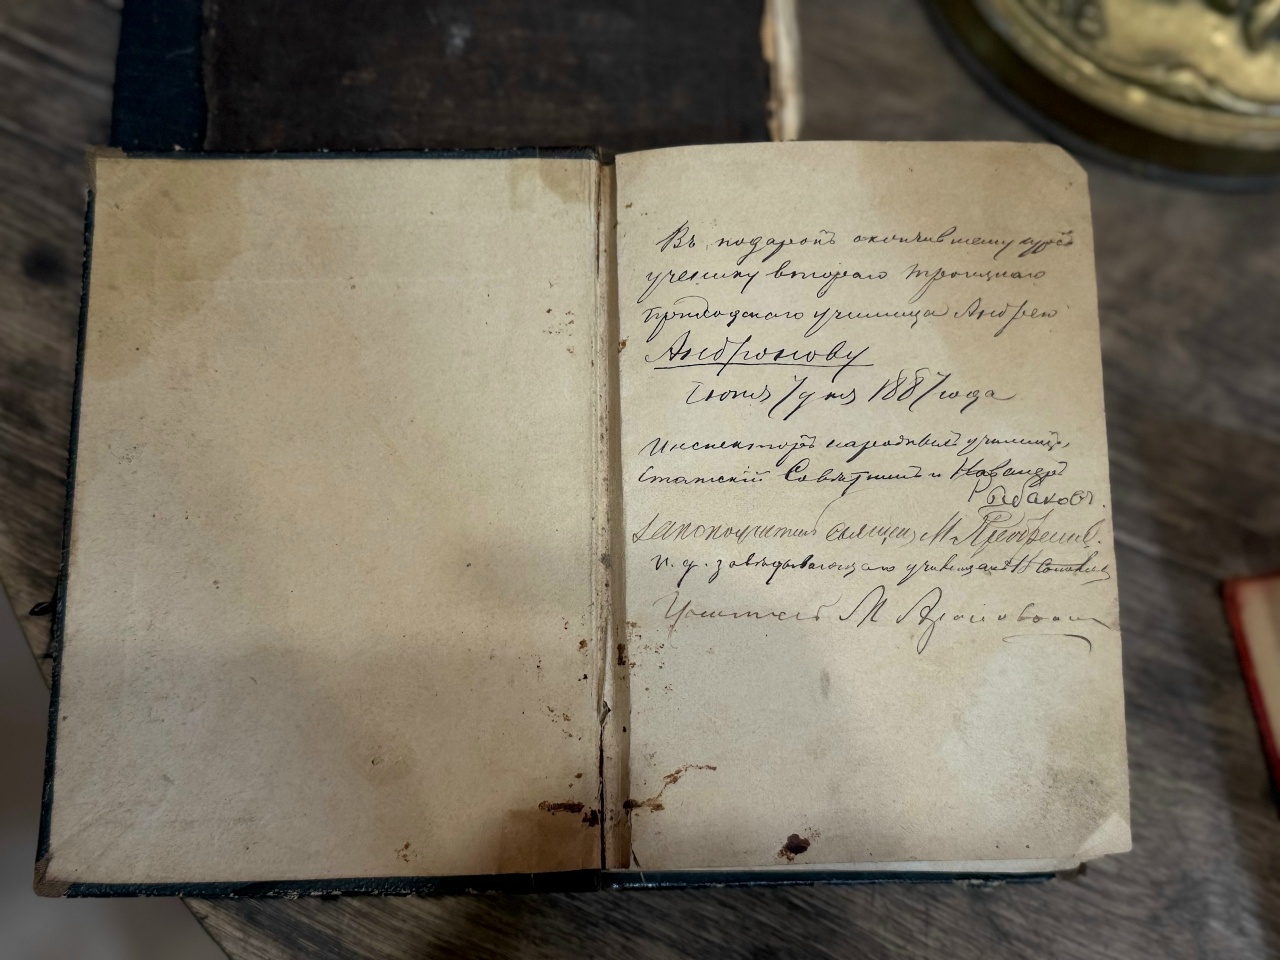 Въ подарокъ окончившему курсъ
ученику втораго Троицкаго
приходскаго училища Андрею
Андронову
Іюня 7 дня 1887 года
Инспекторъ народныхъ училищъ,
Статскій Совѣтникъ и Кавалеръ
Рыбаковъ.
Законоучитель священ. М.
и. д. завѣдывающаго училищемъ
Учитель М